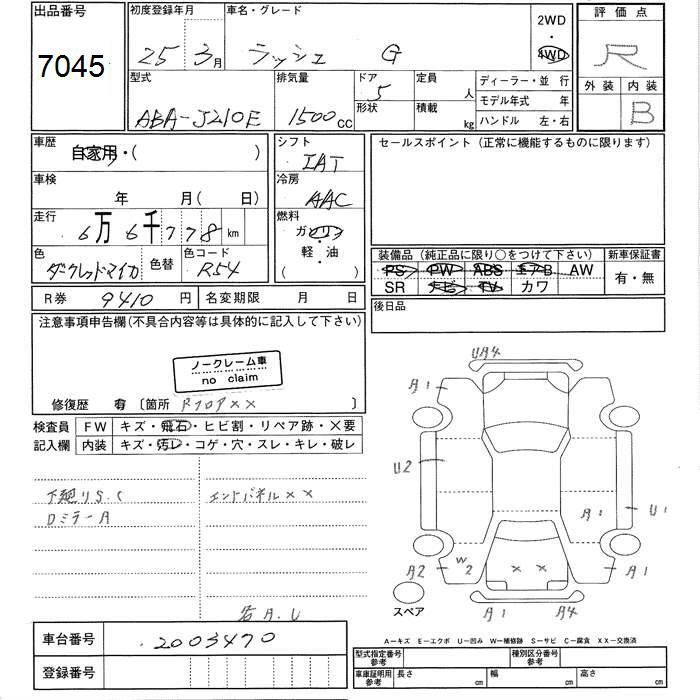 出品番号
7045
初度登録年月
25 3月
車名・グレード
ラッシュ G
2WD
・
4WD
評価点
R
外装 内装
B
型式
ABA-J210E
排気量
1500cc
ドア
5
形状
定員
人
積載
kg
ディーラー・並 行
モデル年式 年
ハンドル 左・右
車歴
自家用・( )
車検
年 月( 日)
走行
6万6千778km
色
ダークレッドマイカ
色替
色コード
R54
シフト
IAT
冷房
AAC
燃料
ガソリン
軽・油
( )
セールスポイント (正常に機能するものに限ります)
装備品 (純正品に限り○をつけて下さい)
PS PW ABS エアB AW
SR ナビ TV カワ
新車保証書
有・無
R券 9410円
名変期限 月 日
後日品
注意事項申告欄(不具合内容等は具体的に記入して下さい)
ノークレーム車
no claim
修復歴 有 〔箇所 Rフロア×× 〕
検査員
記入欄
FW キズ・飛石・ヒビ割・リペア跡・×要
内装 キズ・汚レ・コゲ・穴・スレ・キレ・破レ
下廻りS.C
Dミラー A
エンドパネル ××
若A.U
UA4
A1
U2
A1
U1
A2
W2
× ×
A1
A1
A4
スペア
車台番号
2003470
登録番号
A―キズ E―エクボ U―凹み W―補修跡 S―サビ C―腐食 XX―交換済
型式指定番号
参考
種別区分番号
参考
車庫証明用
参考
長さ cm
幅 cm
高さ cm